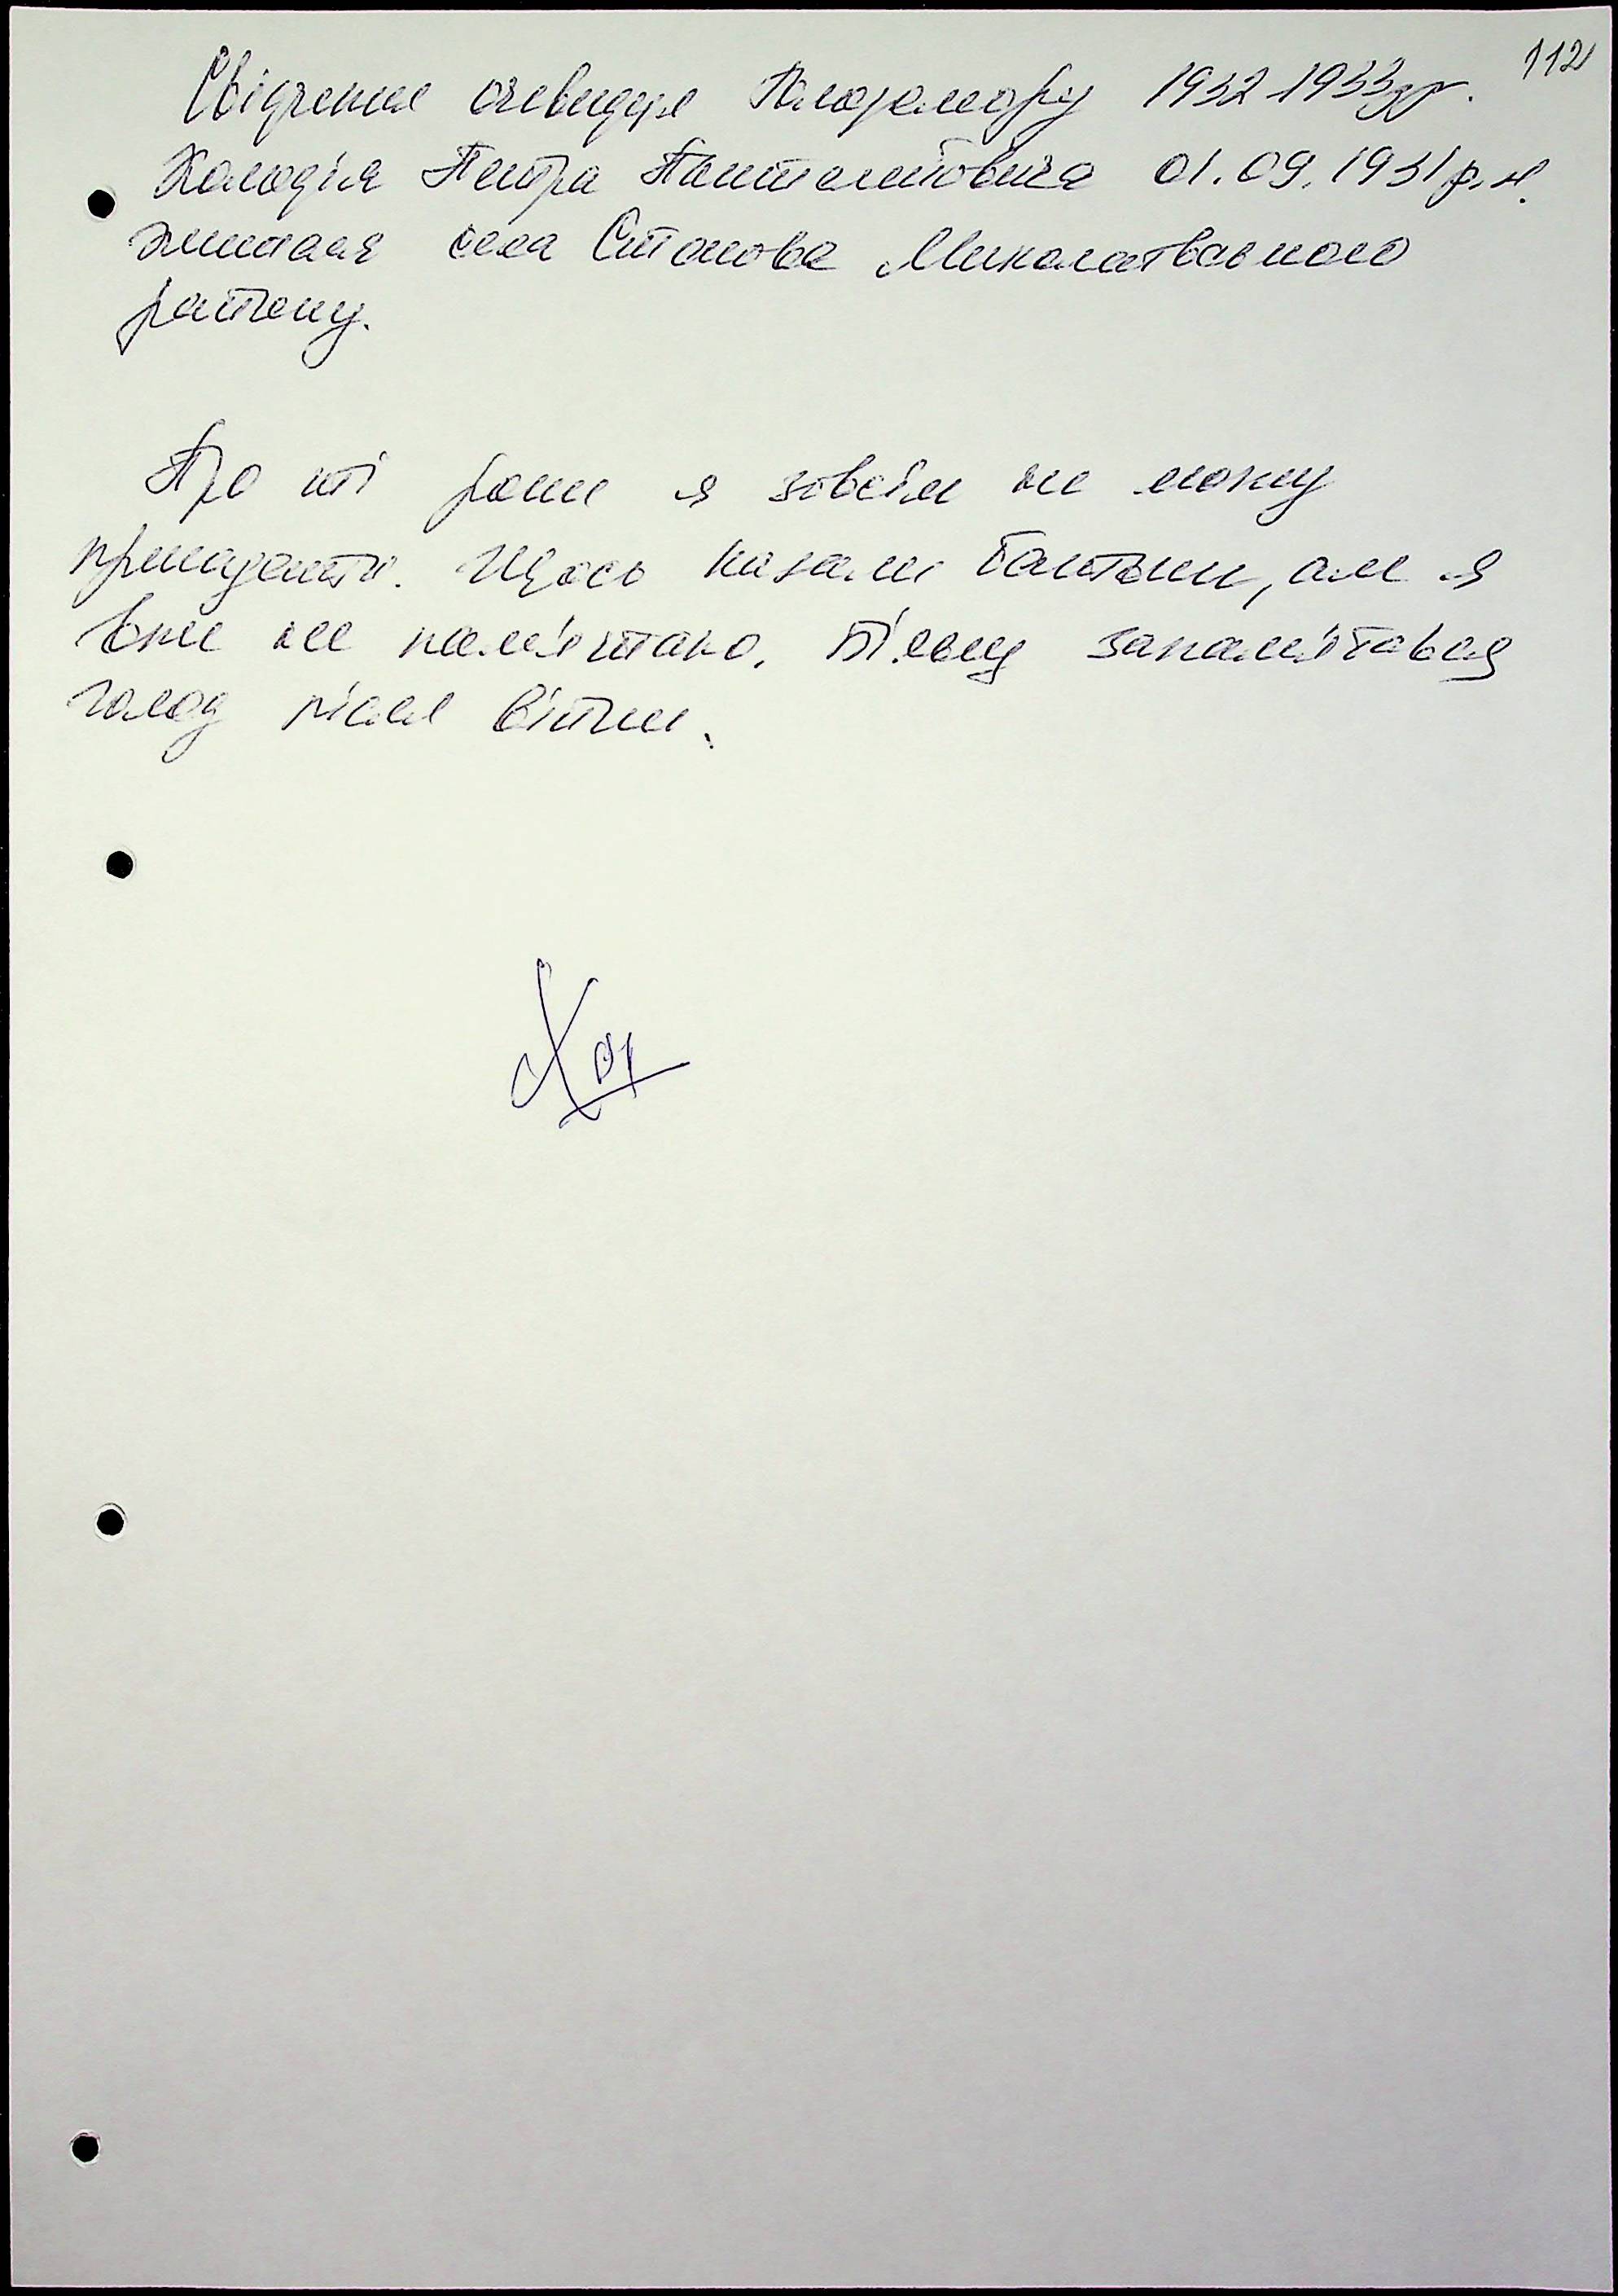 112
Свідчення очевидця Голодомору 1932-1933рр.
Холодія Петра Пантелейовича 01.09.1931р.н.
жителя села Степове Миколаївського
району.
Про ті роки я зовсім не можу
пригадати. Щось казали батьки, але я
вже не пам'ятаю. Більш запам'ятався
голод після війни.